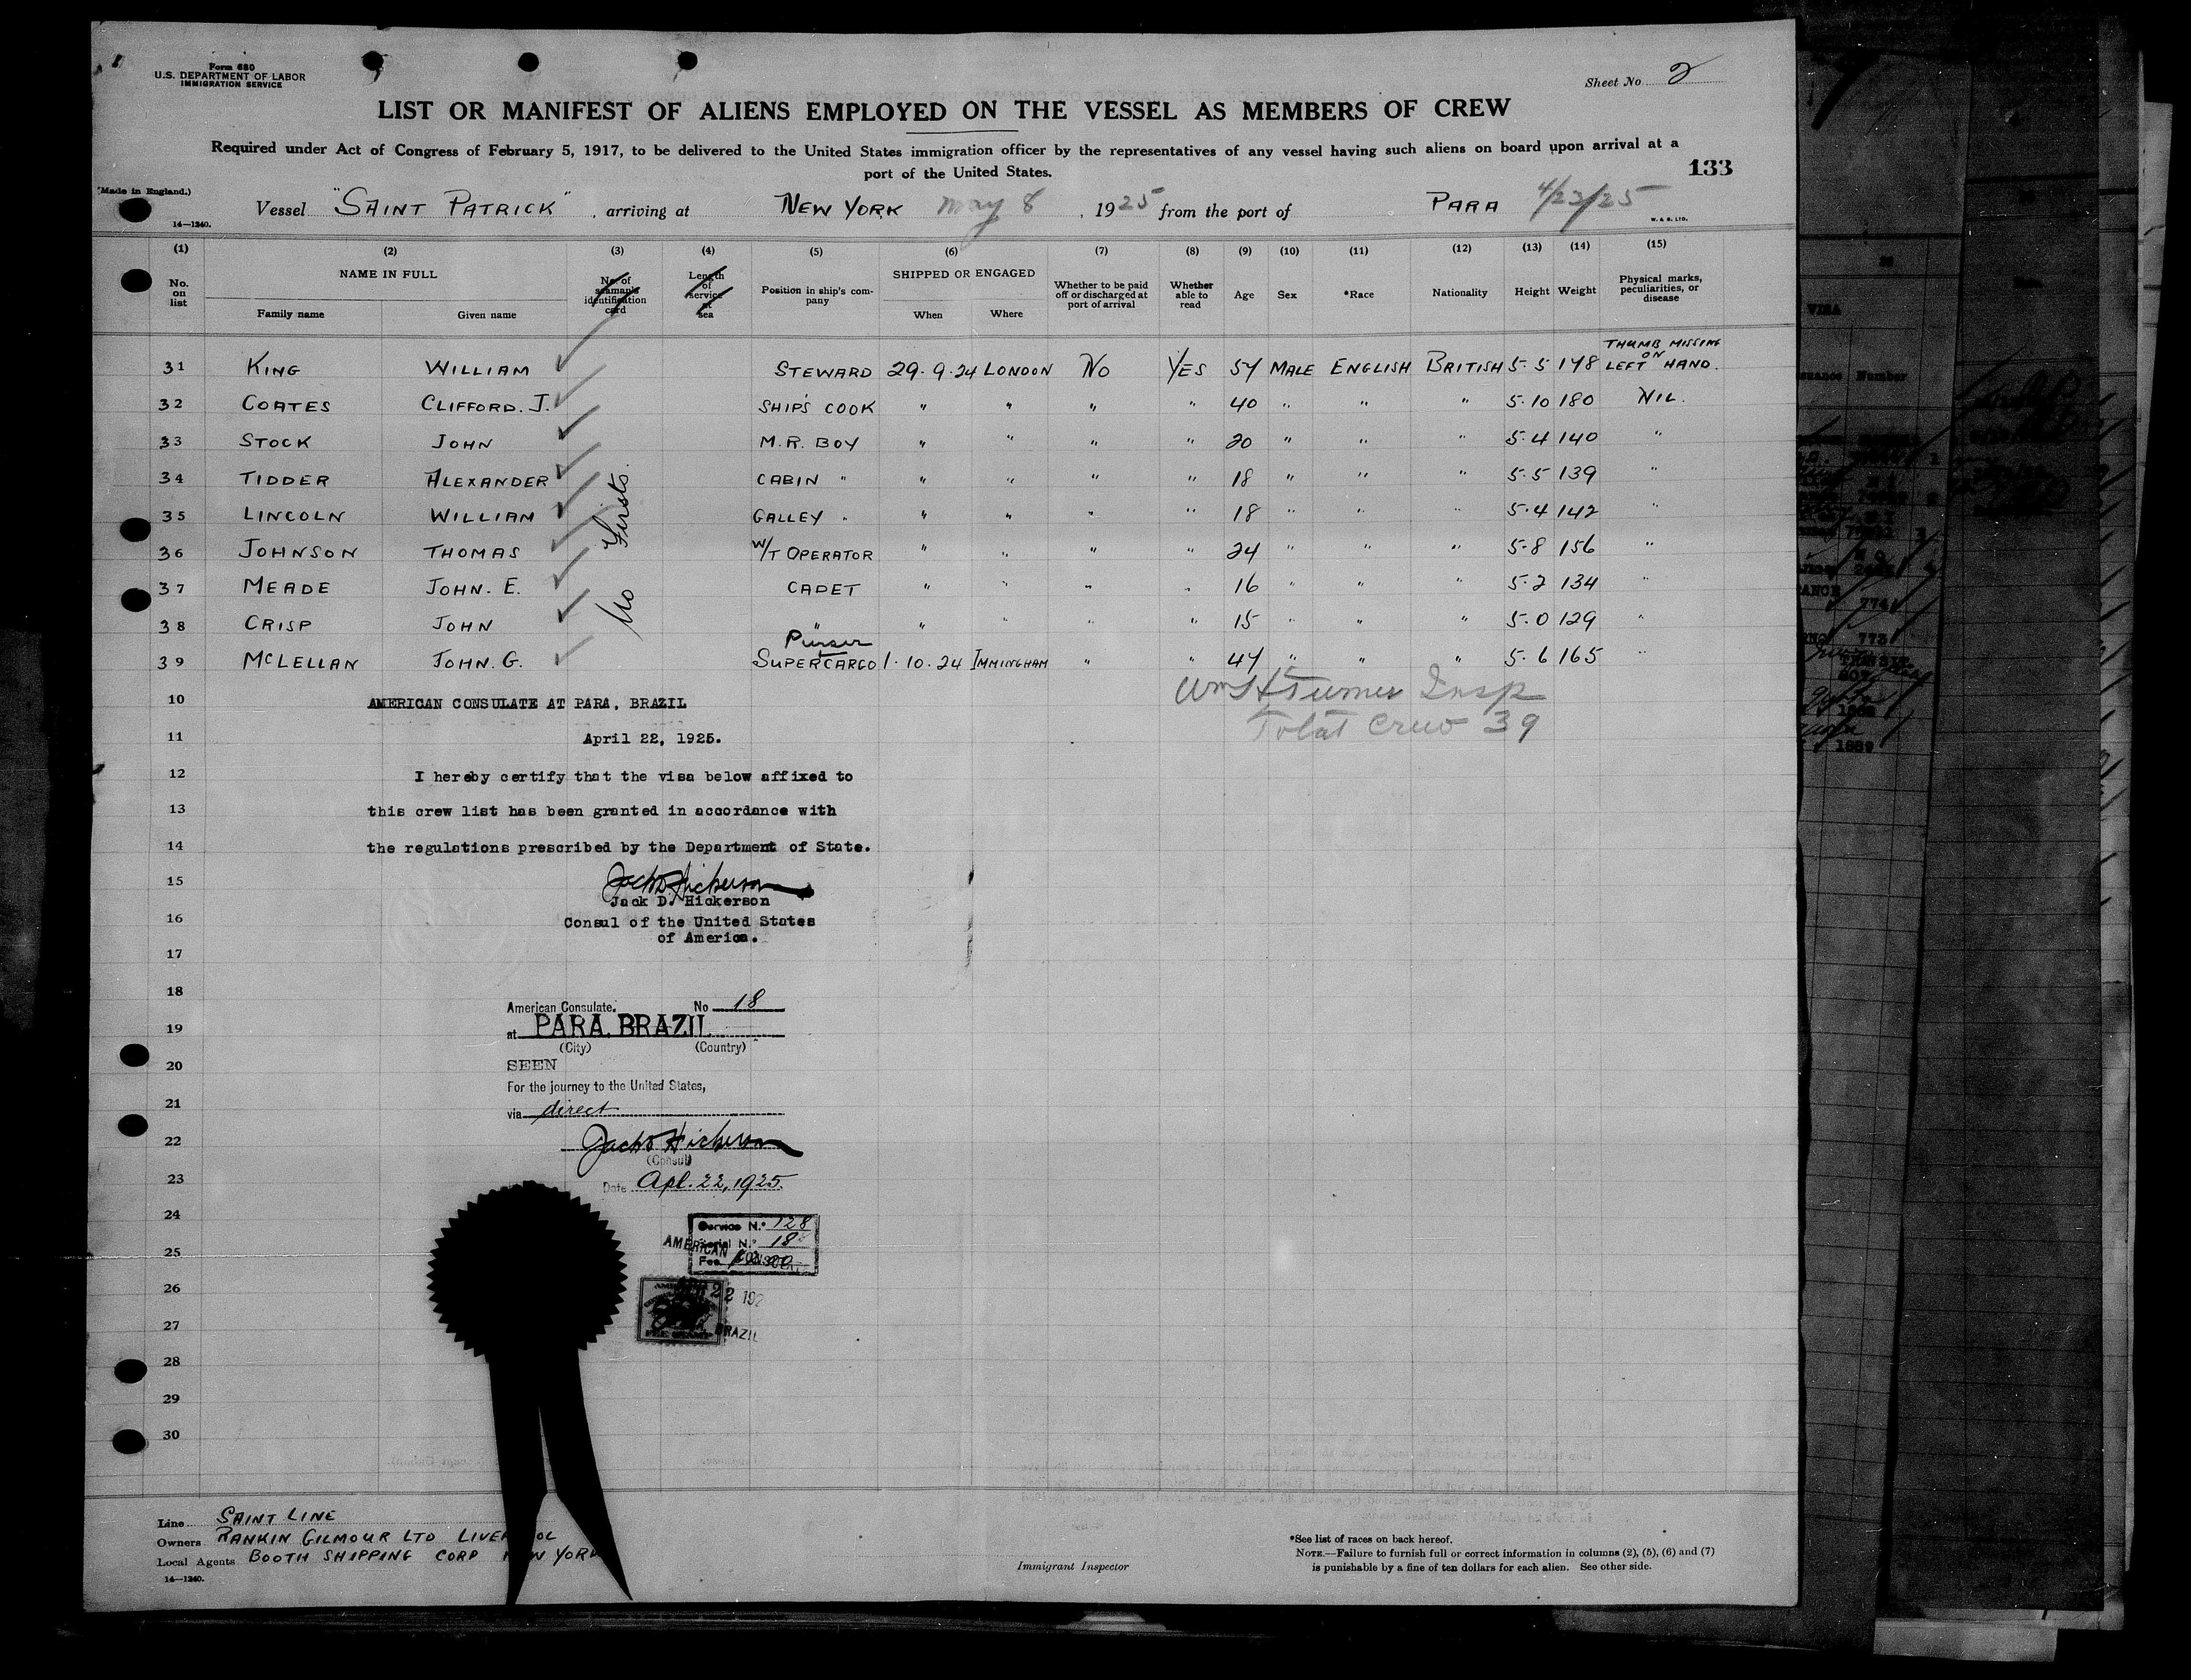 Form 680
U.S. DEPARTMENT OF LABOR
IMMIGRATION SERVICE
Sheet No. 2
LIST OR MANIFEST OF ALIENS EMPLOYED ON THE VESSEL AS MEMBERS OF CREW
Required under Act of Congress of February 5, 1917, to be delivered to the United States immigration officer by the representatives of any vessel having such aliens on board upon arrival at a
port of the United States.
133
(Made in England.)
Vessel "SAINT PATRICK", arriving at NEW YORK May 8, 1925 from the port of PARA 4/23/25
14—1240.
W. & S. LTD.
(1) (2) (3) (4) (5) (6) (7) (8) (9) (10) (11) (12) (13) (14) (15)
No. on list
NAME IN FULL
Family name Given name
No. of seaman's identification card
Length of service at sea
Position in ship's company
SHIPPED OR ENGAGED
When Where
Whether to be paid off or discharged at port of arrival
Whether able to read
Age Sex *Race Nationality Height Weight
Physical marks, peculiarities, or disease
31 KING WILLIAM STEWARD 29.9.24 LONDON NO YES 54 MALE ENGLISH BRITISH 5.5 148 THUMB MISSING ON LEFT HAND.
32 COATES CLIFFORD. J. SHIP'S COOK " " " " 40 " " " 5.10 180 NIL.
33 STOCK JOHN M.R. BOY " " " " 20 " " " 5.4 140 "
34 TIDDER ALEXANDER CABIN " " " " " 18 " " " 5.5 139 "
35 LINCOLN WILLIAM GALLEY " " " " " 18 " " " 5.4 142 "
36 JOHNSON THOMAS W/T OPERATOR " " " " 24 " " " 5.8 156 "
37 MEADE JOHN. E. CADET " " " " 16 " " " 5.2 134 "
38 CRISP JOHN " " " " " 15 " " " 5.0 129 "
Purser
39 McLELLAN JOHN. G. SUPERCARGO 1.10.24 IMMINGHAM " " 47 " " " 5.6 165 "
No Firsts.
Wm H Turner Insp
Total Crew 39
10 AMERICAN CONSULATE AT PARA, BRAZIL
11 April 22, 1925.
12 I hereby certify that the visa below affixed to
13 this crew list has been granted in accordance with
14 the regulations prescribed by the Department of State.
15 Jack D Hickerson
Jack D. Hickerson
16 Consul of the United States
of America.
17
18 American Consulate. No 18
19 at PARA, BRAZIL
(City) (Country)
20 SEEN
For the journey to the United States,
21 via direct
22 Jack D Hickerson
(Consul)
23 Date Apl. 22, 1925.
24 Service N.° 128
25 Serial N.° 18
Fee
AMERICAN CONSULATE
26 22 192
27 BRAZIL
FEE STAMP
28
29
30
Line SAINT LINE
Owners RANKIN GILMOUR LTD LIVERPOOL
Local Agents BOOTH SHIPPING CORP NEW YORK
14—1240.
Immigrant Inspector
*See list of races on back hereof.
NOTE.—Failure to furnish full or correct information in columns (2), (5), (6) and (7)
is punishable by a fine of ten dollars for each alien. See other side.